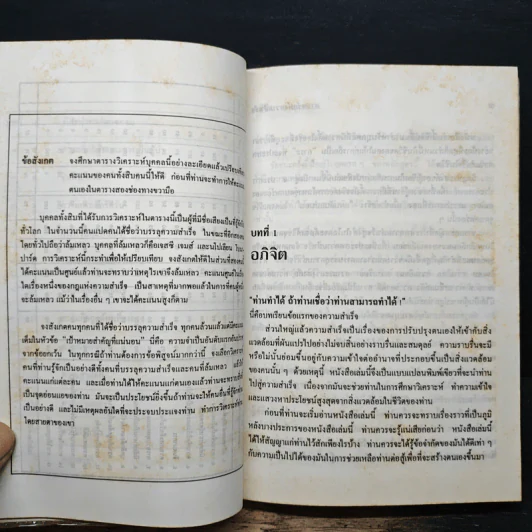 ข้อสังเกต จงศึกษาตารางวิเคราะห์บุคคลนี้อย่างละเอียดแล้วเปรียบเทียบ
คะแนนของคนทั้งสิบคนนี้ให้ดี ก่อนที่ท่านจะทำการให้คะแนน
ตนเองในตารางสองช่องทางขวามือ
บุคคลทั้งสิบที่ได้รับการวิเคราะห์ในตารางนี้เป็นผู้ที่มีชื่อเสียงเป็นที่รู้จัก
ทั่วโลก ในจำนวนนี้คนแปดคนได้ชื่อว่าบรรลุความสำเร็จ ในขณะที่อีกสอง
โดยทั่วไปถือว่าล้มเหลว บุคคลที่ล้มเหลวก็คือเจสซี เจมส์ และนโปเลียน โบนา
ปาร์ต การวิเคราะห์นี้กระทำเพื่อให้เปรียบเทียบ จงสังเกตให้ดีในส่วนที่ทั้งสอง
ได้คะแนนเป็นศูนย์แล้วท่านจะทราบว่าเหตุไรเขาจึงล้มเหลว คะแนนศูนย์ใน
ใดเรื่องหนึ่งของกฎแห่งความสำเร็จ เป็นสาเหตุที่มากพอแล้วในการที่คน
จะล้มเหลว แม้ว่าในเรื่องอื่น ๆ เขาจะได้คะแนนสูงก็ตาม
จงสังเกตคนทุกคนที่ได้ชื่อว่าบรรลุความสำเร็จ ทุกคนล้วนแล้วแต่มีคะแนน
เต็มในหัวข้อ "เป้าหมายสำคัญที่แน่นอน" นี่คือ ความจำเป็นอันดับแรก
จากข้อยกเว้น ในทุกกรณีถ้าท่านต้องการข้อพิสูจน์มากกว่านี้ จงเลือกวิเคราะห์
คนที่ท่านรู้จักเป็นอย่างดีทั้งคนที่บรรลุความสำเร็จและคนที่ล้มเหลว แล้วให้
คะแนนแก่แต่ละคน และเมื่อท่านได้ให้คะแนนแก่ตนเองแล้วท่านจะทราบถึง
เป็นจุดอ่อนแอของท่าน มันจะเป็นประโยชน์ยิ่งขึ้นถ้าท่านจะให้คนอื่นที่รู้จัก
เป็นอย่างดี และไม่มีเหตุผลอันใดที่จะประจบประแจงท่าน ทำการวิเคราะห์ท่าน
โดยสายตาของเขา
บทที่ 1
อภิจิต
"ท่านทำได้ ถ้าท่านเชื่อว่าท่านสามารถทำได้ !"
นี่คือบทเรียนข้อแรกของความสำเร็จ
ส่วนใหญ่แล้วความสำเร็จเป็นเรื่องของการปรับปรุงตนเองให้เข้ากับสิ่ง
แวดล้อมที่ผันแปรไปอย่างไม่จบสิ้นอย่างราบรื่นและสมดุลย์ ความราบรื่นจะมี
หรือไม่นั้นย่อมขึ้นอยู่กับความเข้าใจต่ออำนาจที่ประกอบขึ้นเป็นสิ่งแวดล้อม
ของคนนั้น ๆ ด้วยเหตุนี้ หนังสือเล่มนี้จึงเป็นแบบแปลนพิมพ์เขียวที่จะนำท่าน
ไปสู่ความสำเร็จ เนื่องจากมันจะช่วยท่านในการศึกษาวิเคราะห์ ทำความเข้าใจ
และแสวงหาประโยชน์สูงสุดจากสิ่งแวดล้อมในชีวิตของท่าน
ก่อนที่ท่านจะเริ่มอ่านหนังสือเล่มนี้ ท่านควรจะทราบเรื่องราวที่เป็นภูมิ
หลังบางประการของหนังสือเล่มนี้ ท่านควรจะรู้แน่เสียก่อนว่า หนังสือเล่มนี้
ได้ให้สัญญาแก่ท่านไว้สักเพียงไรบ้าง ท่านควรจะได้รู้ข้อจำกัดของมันได้ดีเท่า ๆ
กับความเป็นไปได้ของมันในการช่วยเหลือท่านต่อสู้เพื่อที่จะสร้างตนเองขึ้นมา